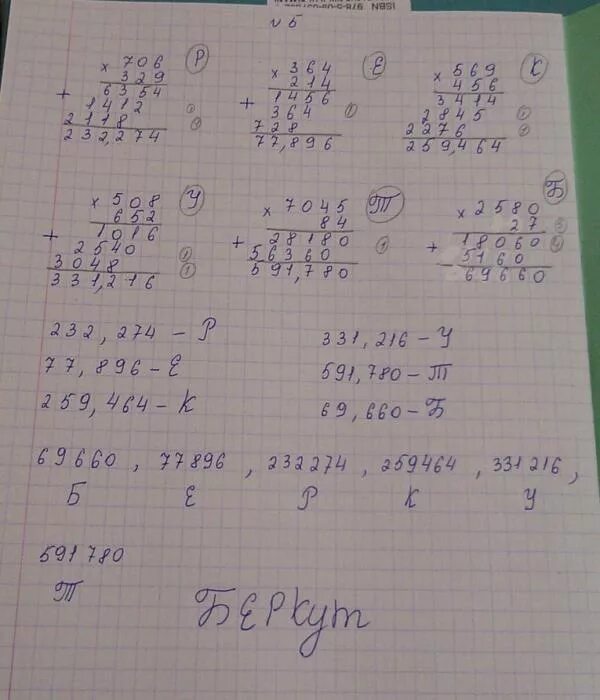 ISBN 978-5-09-0
№5
Р
× 706
329
+ 6354
1412
2118
232,274
Е
× 364
214
+ 1456
364
728
77,896
К
× 569
456
3414
2845
2276
259,464
У
× 508
652
+ 1016
2540
3048
331,216
Т
× 7045
84
+ 28180
56360
591,780
Б
× 2580
27
+ 18060
5160
69660
232,274 – Р
77,896 – Е
259,464 – К
331,216 – У
591,780 – Т
69,660 – Б
69660, 77896, 232274, 259464, 331216,
Б Е Р К У
591780
Т
БЕРКУТ